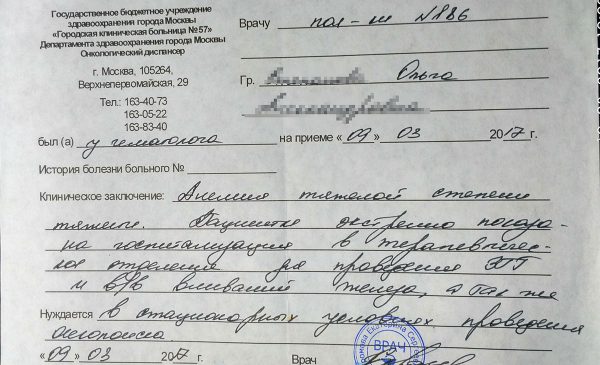 Государственное бюджетное учреждение
здравоохранения города Москвы
«Городская клиническая больница №57»
Департамента здравоохранения города Москвы
Онкологический диспансер
г. Москва, 105264,
Верхнепервомайская, 29
Тел.: 163-40-73
163-05-22
163-83-40
Врачу пол-ки №186
Гр. Ольга
был (а) у гематолога на приеме «09» 03 2017 г.
История болезни больного №
Клиническое заключение: Анемия тяжелой степени
тяжести. Пациентке экстренно показа-
на госпитализация в терапевтичес-
кое отделение для проведения
и в/в вливаний железа, а так же
Нуждается в стационарных условиях проведения
«09» 03 2017 г. Врач
ВРАЧ
Екатерина